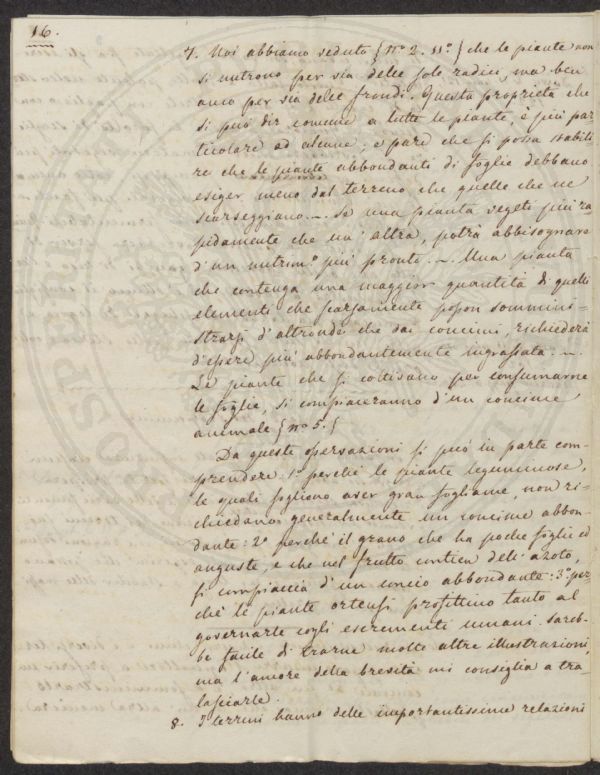 16.
7. Noi abbiamo veduto {n.º 2. 11º} che le piante non
si nutrono per via delle sole radici, ma ben
anco per via delle frondi. Questa proprietà che
si può dir comune a tutte le piante, è più par-
ticolare ad alcune; e pare che si possa stabili-
re che le piante abbondanti di foglie debbano
esiger meno dal terreno, che quelle che ne
scarseggiano. _ . Se una pianta vegeti più ra-
pidamente che un' altra, potrà abbisognare
d'un nutrim.º più pronto. _ . Una pianta
che contenga una maggior quantità di quelli
elementi che scarsamente posson sommini-
strarsi d'altronde che dai concimi, richiederà
d'essere più abbondantemente ingrassata. _ .
Le piante che si coltivano per consumarne
le foglie, si compiaceranno d'un concime
animale {nº 5.}
Da queste osservazioni si può in parte com-
prendere 1º perché le piante leguminose,
le quali sogliono aver gran fogliame, non ri-
chiedano generalmente un concime abbon-
dante: 2º perché il grano che ha poche foglie ed
anguste, e che nel frutto contien dell' azoto,
si compiaccia d'un concio abbondante: 3º per-
ché le piante ortensi profittino tanto al
governarle cogli escrementi umani. Sareb-
be facile di trarne molte altre illustrazioni,
ma l'amore della brevità mi consiglia a tra-
lasciarle.
8. I terreni hanno delle importantissime relazioni